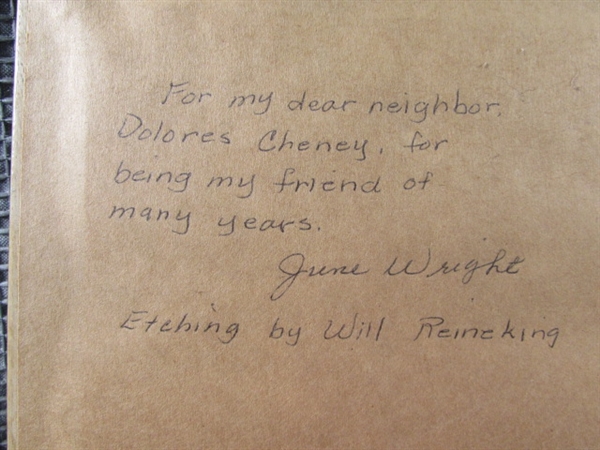 For my dear neighbor,
Dolores Cheney, for
being my friend of
many years.
June Wright
Etching by Will Reineking